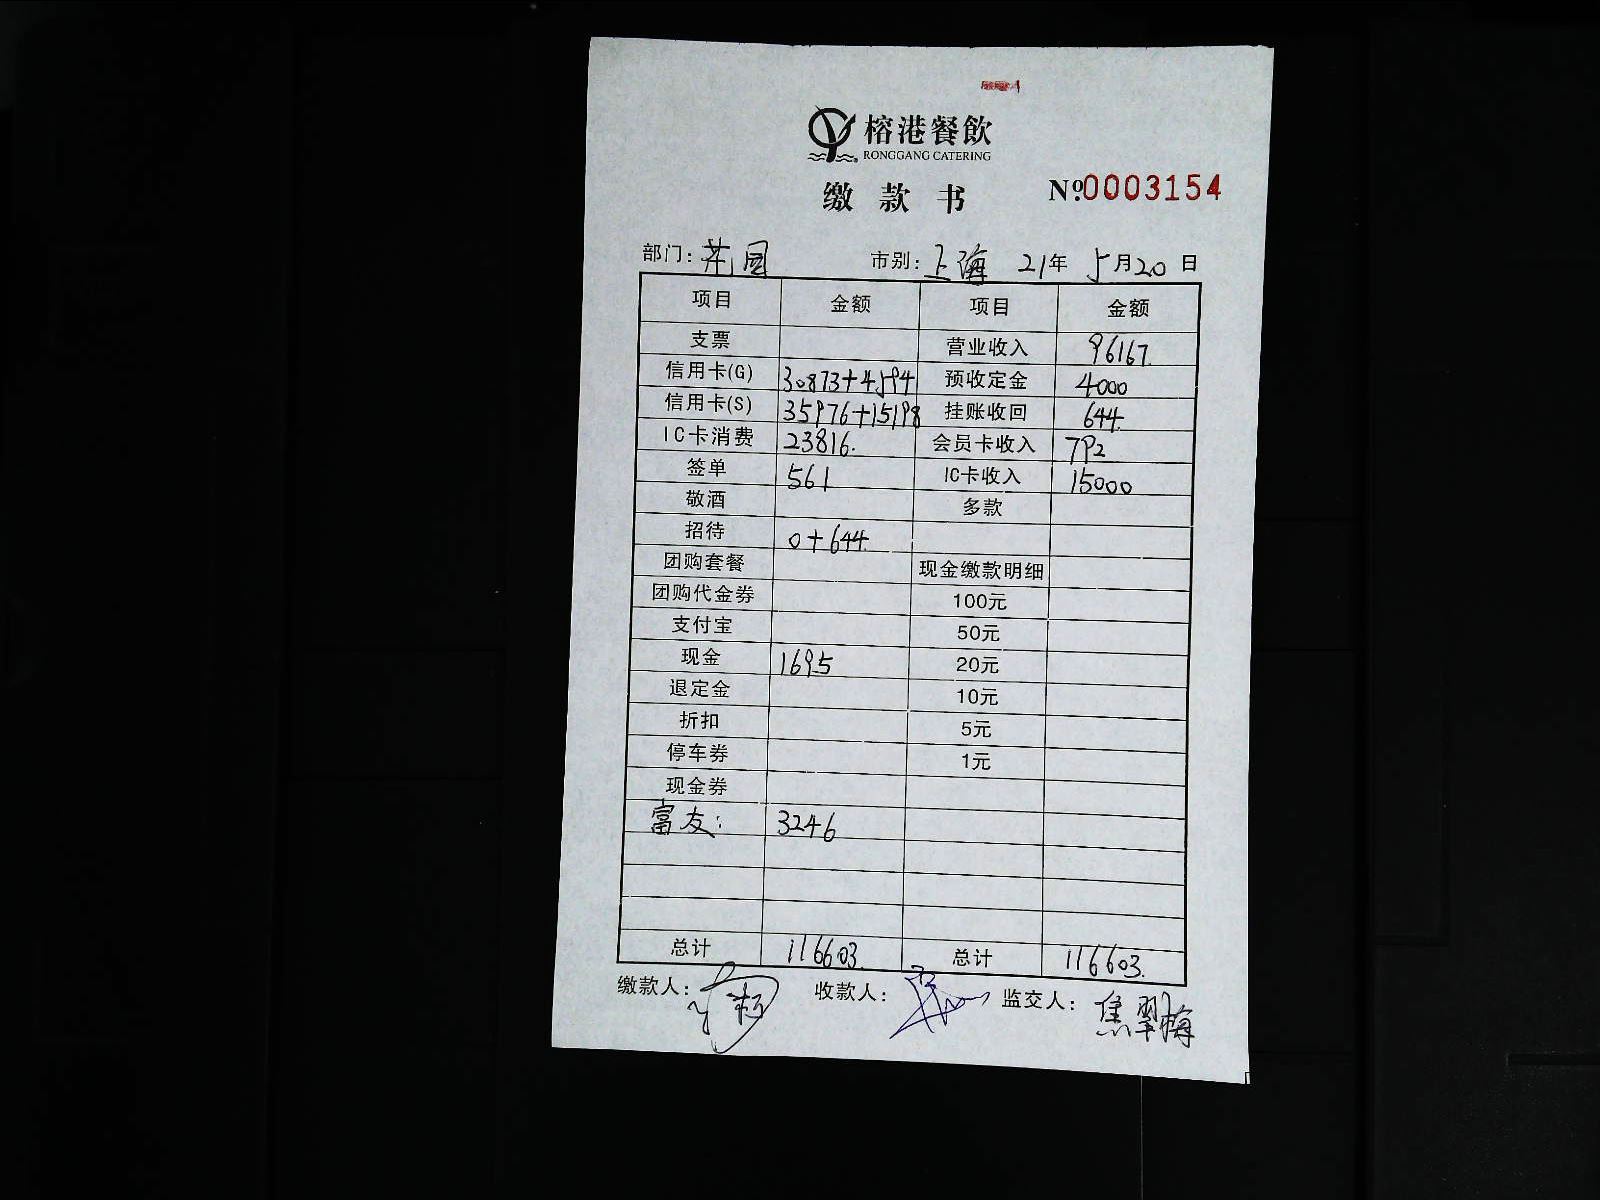 榕港餐飲
RONGGANG CATERING
缴款书 Nº.0003154
部门: 市别: 上海 21年 5月20日
项目 金额 项目 金额
支票 营业收入 96167.
信用卡(G) 30873+4594 预收定金 4000
信用卡(S) 35976+15198 挂账收回 644.
IC卡消费 23816. 会员卡收入 792
签单 561 IC卡收入 15000
敬酒 多款
招待 0+644.
团购套餐 现金缴款明细
团购代金券 100元
支付宝 50元
现金 1695 20元
退定金 10元
折扣 5元
停车券 1元
现金券
富友: 3246
总计 116603. 总计 116603.
缴款人: 收款人: 监交人: 焦翠梅